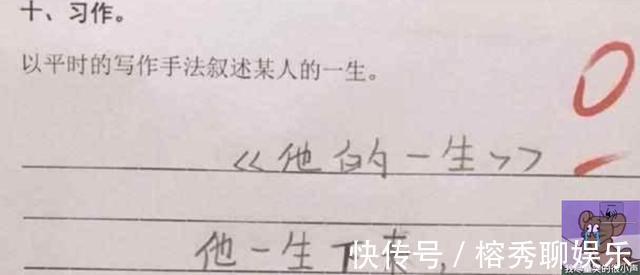 十、习作。
以平时的写作手法叙述某人的一生。
0
《他的一生》
他一生下
快传号／榕秀聊娱乐